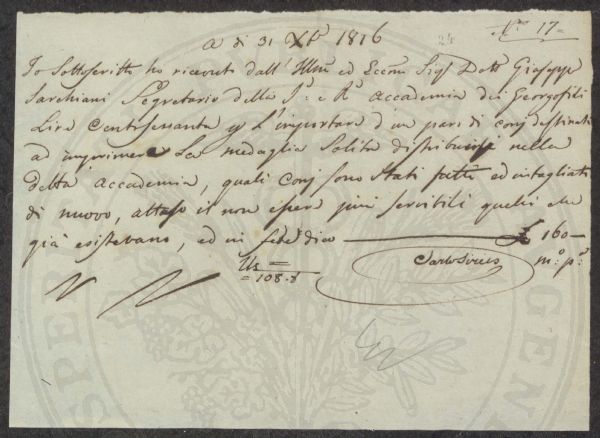 N.° 17.
24
A dì 31 Xbre 1816
Io Sottoscritto ho ricevuto dall' Illmo ed Eccmo Sigr Dott Giuseppe
Sarchiani Segretario della I. e R. Accademia dei Georgofili
Lire Centosessanta p l'importare d'un paro di conj destinati
ad imprimere la medaglia Solita distribuirsi nella
detta Accademia, quali conj sono stati fatti ed intagliati
di nuovo, atteso il non essere più servibili quelli che
già esistevano, ed in fede dico £ 160
Carlo Siries m.° p.ª
108